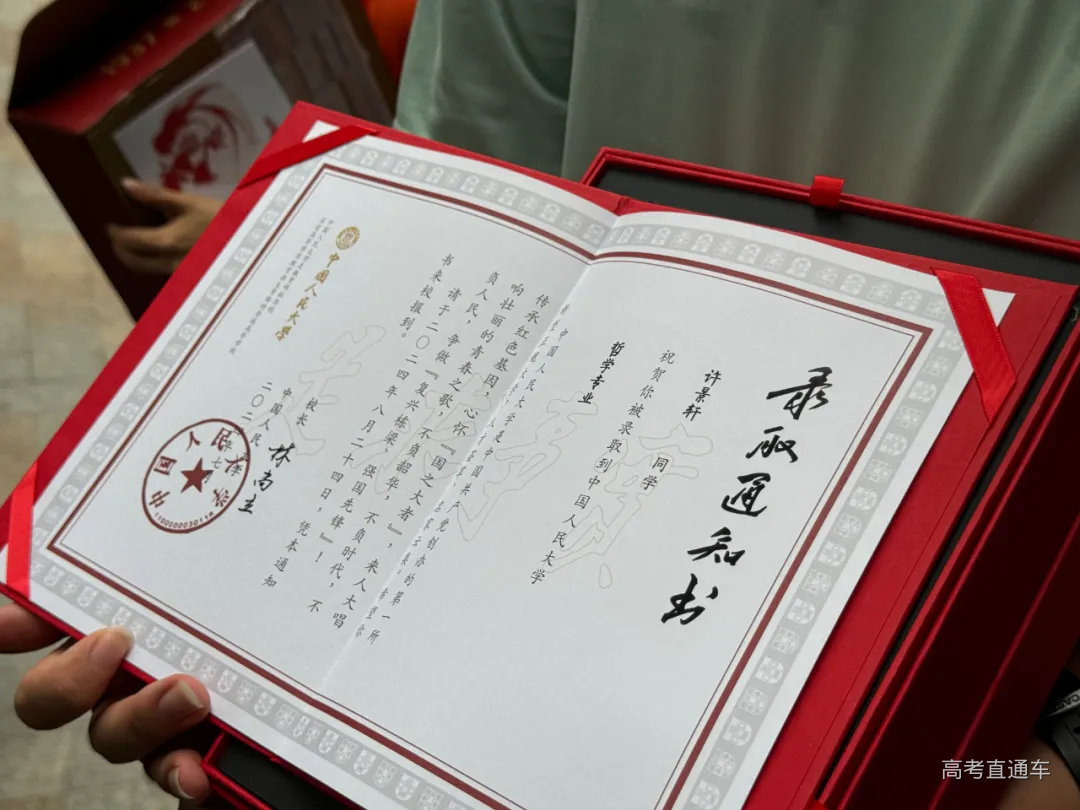 录取通知书
许景轩 同学
祝贺你被录取到中国人民大学
哲学专业
中国人民大学是中国共产党创办的第一所
传承红色基因，心怀『国之大者』，来人大唱
响壮丽的青春之歌，不负韶华，不负时代，不
负人民，争做『复兴栋梁，强国先锋』！
请于二〇二四年八月二十四日，凭本通知
书来校报到。
校长 林尚立
中国人民
二〇二
中国人民大学
中国人民大学
1937
高考直通车